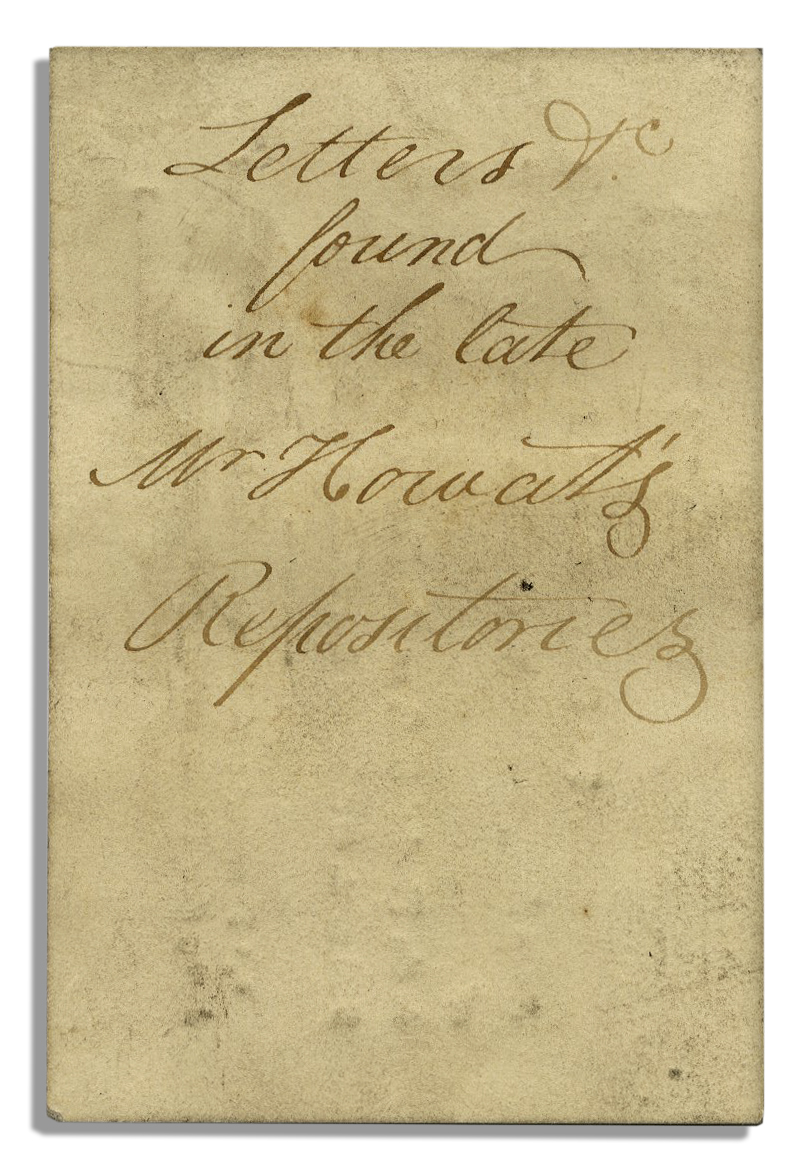 Letters &c
found
in the late
Mr Howat's
Repositories